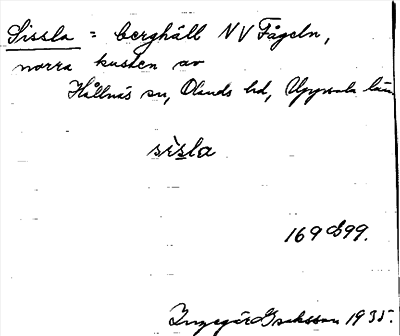 Sissla = berghäll NV Fågeln,
norra kusten av
Hållnäs sn, Olands hd, Uppsala län
sìsla
169 899.
Ingegär Isaksson 1935.